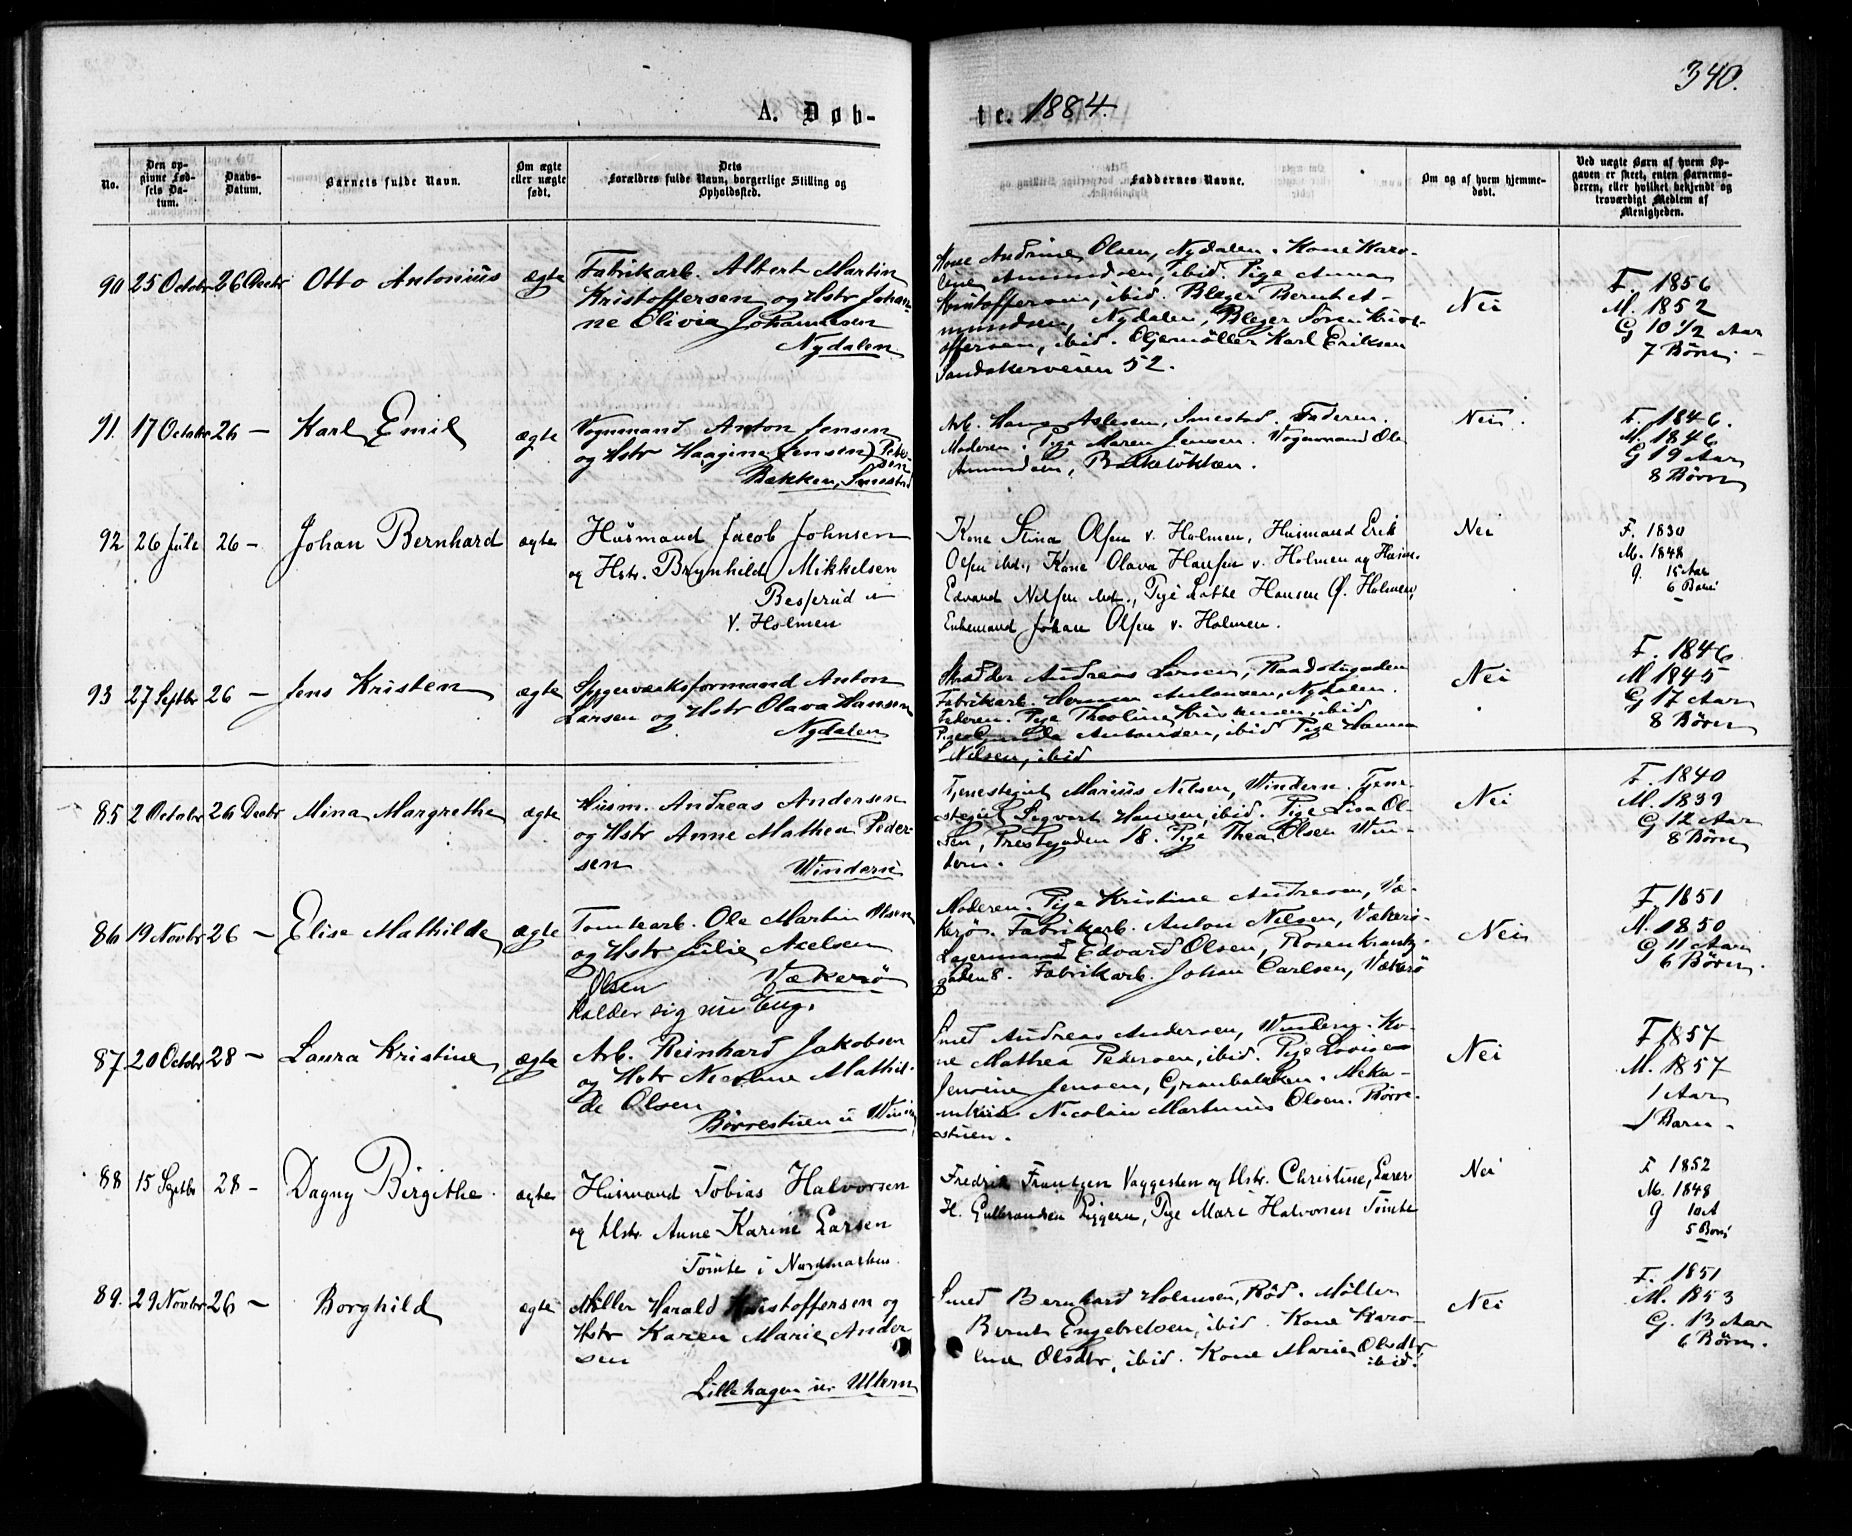 340.
A. Døb-
te. 1884.
No.
Den op-
givne Fød-
sels Da-
tum.
Daabs-
Datum.
Barnets fulde Navn.
Om ægte
eller uægte
født.
Dets
Forældres fulde Navn, borgerlige Stilling og
Opholdssted.
Faddernes Navne.
Om og af hvem hjemme-
døbt.
Ved uægte Barn af hvem Op-
gaven er skeet, enten Barnemo-
deren, eller hvilket bekjendt og
troværdigt Medlem af
Menigheden.
90 25 Octobr 26 Decbr Otto Antonius ægte
Fabrikarb. Albert Martin
Kristoffersen og Hstr Johan-
ne Olivia Johannesen
Nydalen
Kone Andrine Olsen, Nydalen. Kone Karo-
line Amundsen, ibid. Pige Anna
Kristoffersen, ibid. Bleger Bernt A-
mundsen, Nydalen, Bleger Søren Krist-
offersen, ibid. Oljemøller Karl Eriksen
Sandakerveien 52.
Nei
F. 1856
M. 1852
G 10 1/2 Aar
7 Børn.
91. 17 Octobr 26 — Karl Emil ægte
Vognmand Anton Jensen
og Hstr Haagine (Jensen) Peder-
sen
Bakken, Smestad
Arb. Hans Aslesen, Smestad. Faderen.
Moderen. Pige Maren Jensen. Vognmand Ole
Amundsen, Bakkeløkken.
Nei.
F. 1846.
M. 1846
G 19 Aar
8 Børn
92 26 Juli 26 — Johan Bernhard ægte
Husmand Jacob Johnsen
og Hstr. Brynhild Mikkelsen
Besserud u
V. Holmen
Kone Stina Olsen v. Holmen, Husmand Erik
Olsen ibd., Kone Olava Hansen v. Holmen og Husm.
Edvard Nilsen ibd., Pige Lothe Hansen Ø. Holmen,
Enkemand Johan Olsen v. Holmen.
Nei
F. 1830
M. 1848
g. 15 Aar
6 Børn
93 27 Septbr 26 — Jens Kristen ægte
Spigerværksformand Anton
Larsen og Hstr Olava Hansen
Nydalen
Skrædder Andreas Larsen, Raadstugaden
Fabrikarb. Herman Antonsen, Nydalen.
Faderen. Pige Theoline Kristensen, ibid
Pige Gunda Antonsen, ibid Pige Hanna
Nilsen, ibid
Nei
F. 1846
M 1845
G 17 Aar
8 Børn
85 2 Octobr 26 Decbr Mina Margrethe ægte
Husm. Andreas Andersen
og Hstr Anne Mathea Peder-
sen
Windern
Tjenestegut Marius Nilsen, Windern. Tjene-
stegut Sigvart Hansen, ibid. Pige Lisa Ol-
sen, Prestegaden 18. Pige Thea Olsen Win-
dern.
Nei
F. 1840
M. 1839
G 12 Aar
8 Børn
86 19 Novbr 26 — Elise Mathilde ægte
Tomtearb. Ole Martin Olsen
og Hstr Julie Axelsen
Olsen Vækerø
kalder sig nu Eug.
Moderen. Pige Kristine Andresen, Væ-
kerø. Fabrikarb. Anton Nilsen, Vækerø.
Lagermand Edvard Olsen, Rosenkrantz-
gaden 8. Fabrikarb. Johan Carlsen, Vækerø
Nei
F. 1851
M. 1850
G 11 Aar
6 Børn.
87 20 Octobr 28 — Laura Kristine ægte
Arb. Reinhard Jakobsen
og Hstr Nicoline Mathil-
de Olsen
Børrestuen u Win
Smed Andreas Andersen, Windern. Ko-
ne Mathea Pedersen, ibid. Pige Lovise
Jensine Jensen, Granbakken. Meka-
nikus Nicolai Martinius Olsen. Børre-
stuen.
Nei
F 1857
M. 1857
1 Aar
1 Barn.
88 15 Septbr 28 — Dagny Birgithe. ægte
Husmand Tobias Halvorsen
og Hstr. Anne Karine Larsen
Tømte i Nordmarken.
Fredrik Frantzen Vaggesten og Hstr. Christine, Larer
H. Gulbrandsen Liggern, Pige Mari Halvorsen Tømte
Nei
F 1852
M. 1848
g 10 A
5 Børn
89. 29 Novbr 26 — Borghild ægte
Møller Harald Kristoffersen og
Hstr Karen Marie Ander
sen
Lillehagen u. Ullern
Smed Bernhard Holmsen, Rød. Møller
Bernt Engebretsen, ibid. Kone Karo-
line Olsdtr, ibid. Kone Marie Olsdtr
ibid.
Nei
F. 1851
M. 1853
G. 13 Aar
6 Børn.